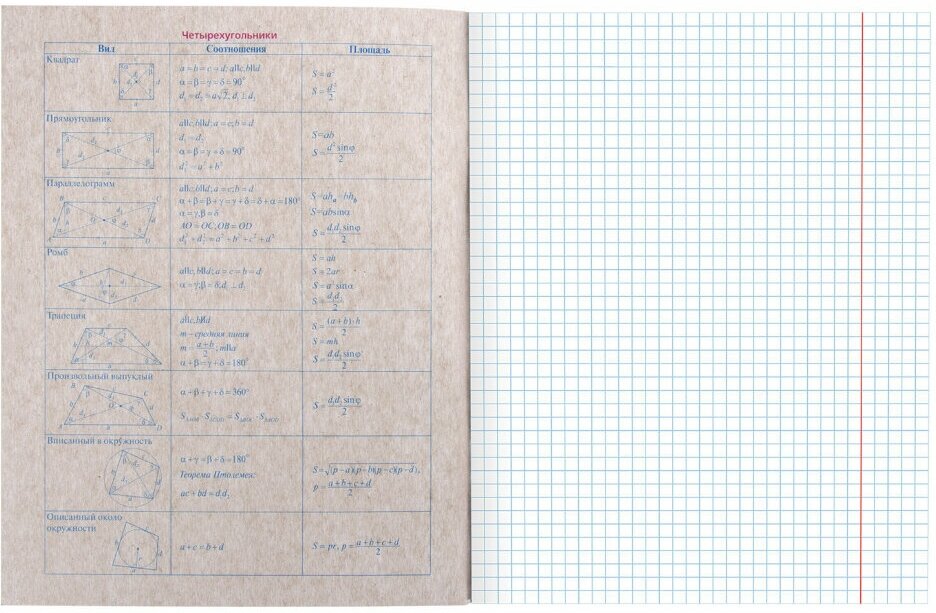 Четырехугольники
Вид Соотношения Площадь
Квадрат
a = b = c = d; a||c, b||d
α = β = γ = δ = 90°
d₁ = d₂ = a√2; d₁ ⊥ d₂
S = a²
S = d²/2
Прямоугольник
a||c, b||d; a = c; b = d
d₁ = d₂
α = β = γ = δ = 90°
d₁² = a² + b²
S = ab
S = d² sinφ/2
Параллелограмм
a||c, b||d; a = c; b = d
α + β = β + γ = γ + δ = δ + α = 180°
α = γ, β = δ
AO = OC, OB = OD
d₁² + d₂² = a² + b² + c² + d²
S = ahₐ = bh_b
S = absinα
S = d₁d₂ sinφ/2
Ромб
a||c, b||d; a = c = b = d
α = γ, β = δ, d₁ ⊥ d₂
S = ah
S = 2ar
S = a² sinα
S = d₁d₂/2
Трапеция
a||c, b∦d
m – средняя линия
m = a+b/2; m||a
α + β = γ + δ = 180°
S = (a+b)·h/2
S = mh
S = d₁d₂ sinφ/2
Произвольный выпуклый
α + β + γ + δ = 360°
S = d₁d₂ sinφ/2
Вписанный в окружность
α + γ = β + δ = 180°
Теорема Птолемея:
ac + bd = d₁d₂
S = √(p–a)(p–b)(p–c)(p–d),
p = a+b+c+d/2
Описанный около
окружности
a + c = b + d
S = pr, p = a+b+c+d/2